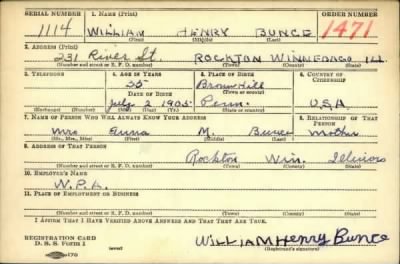 SERIAL NUMBER 1. NAME (Print) ORDER NUMBER
1114 WILLIAM HENRY BUNCE 1471
(First) (Middle) (Last)
2. ADDRESS (Print)
231 River St. ROCKTON WINNEBAGO ILL.
(Number and street or R. F. D. number) (Town) (County) (State)
3. TELEPHONE 4. AGE IN YEARS 5. PLACE OF BIRTH 6. COUNTRY OF CITIZENSHIP
35
DATE OF BIRTH
July 2 1905 Penn. U.S.A.
(Exchange) (Number) (Mo.) (Day) (Yr.) (State or country)
7. NAME OF PERSON WHO WILL ALWAYS KNOW YOUR ADDRESS 8. RELATIONSHIP OF THAT PERSON
Mrs Anna M. Bunce Mother
(Mr., Mrs., Miss) (First) (Middle) (Last)
9. ADDRESS OF THAT PERSON
Rockton Win. Illinois
(Number and street or R. F. D. number) (Town) (County) (State)
10. EMPLOYER'S NAME
W.P.A.
11. PLACE OF EMPLOYMENT OR BUSINESS
(Number and street or R. F. D. number) (Town) (County) (State)
I AFFIRM THAT I HAVE VERIFIED ABOVE ANSWERS AND THAT THEY ARE TRUE.
REGISTRATION CARD
D. S. S. Form 1 (over) WILLIAM Henry Bunce
(Registrant's signature)